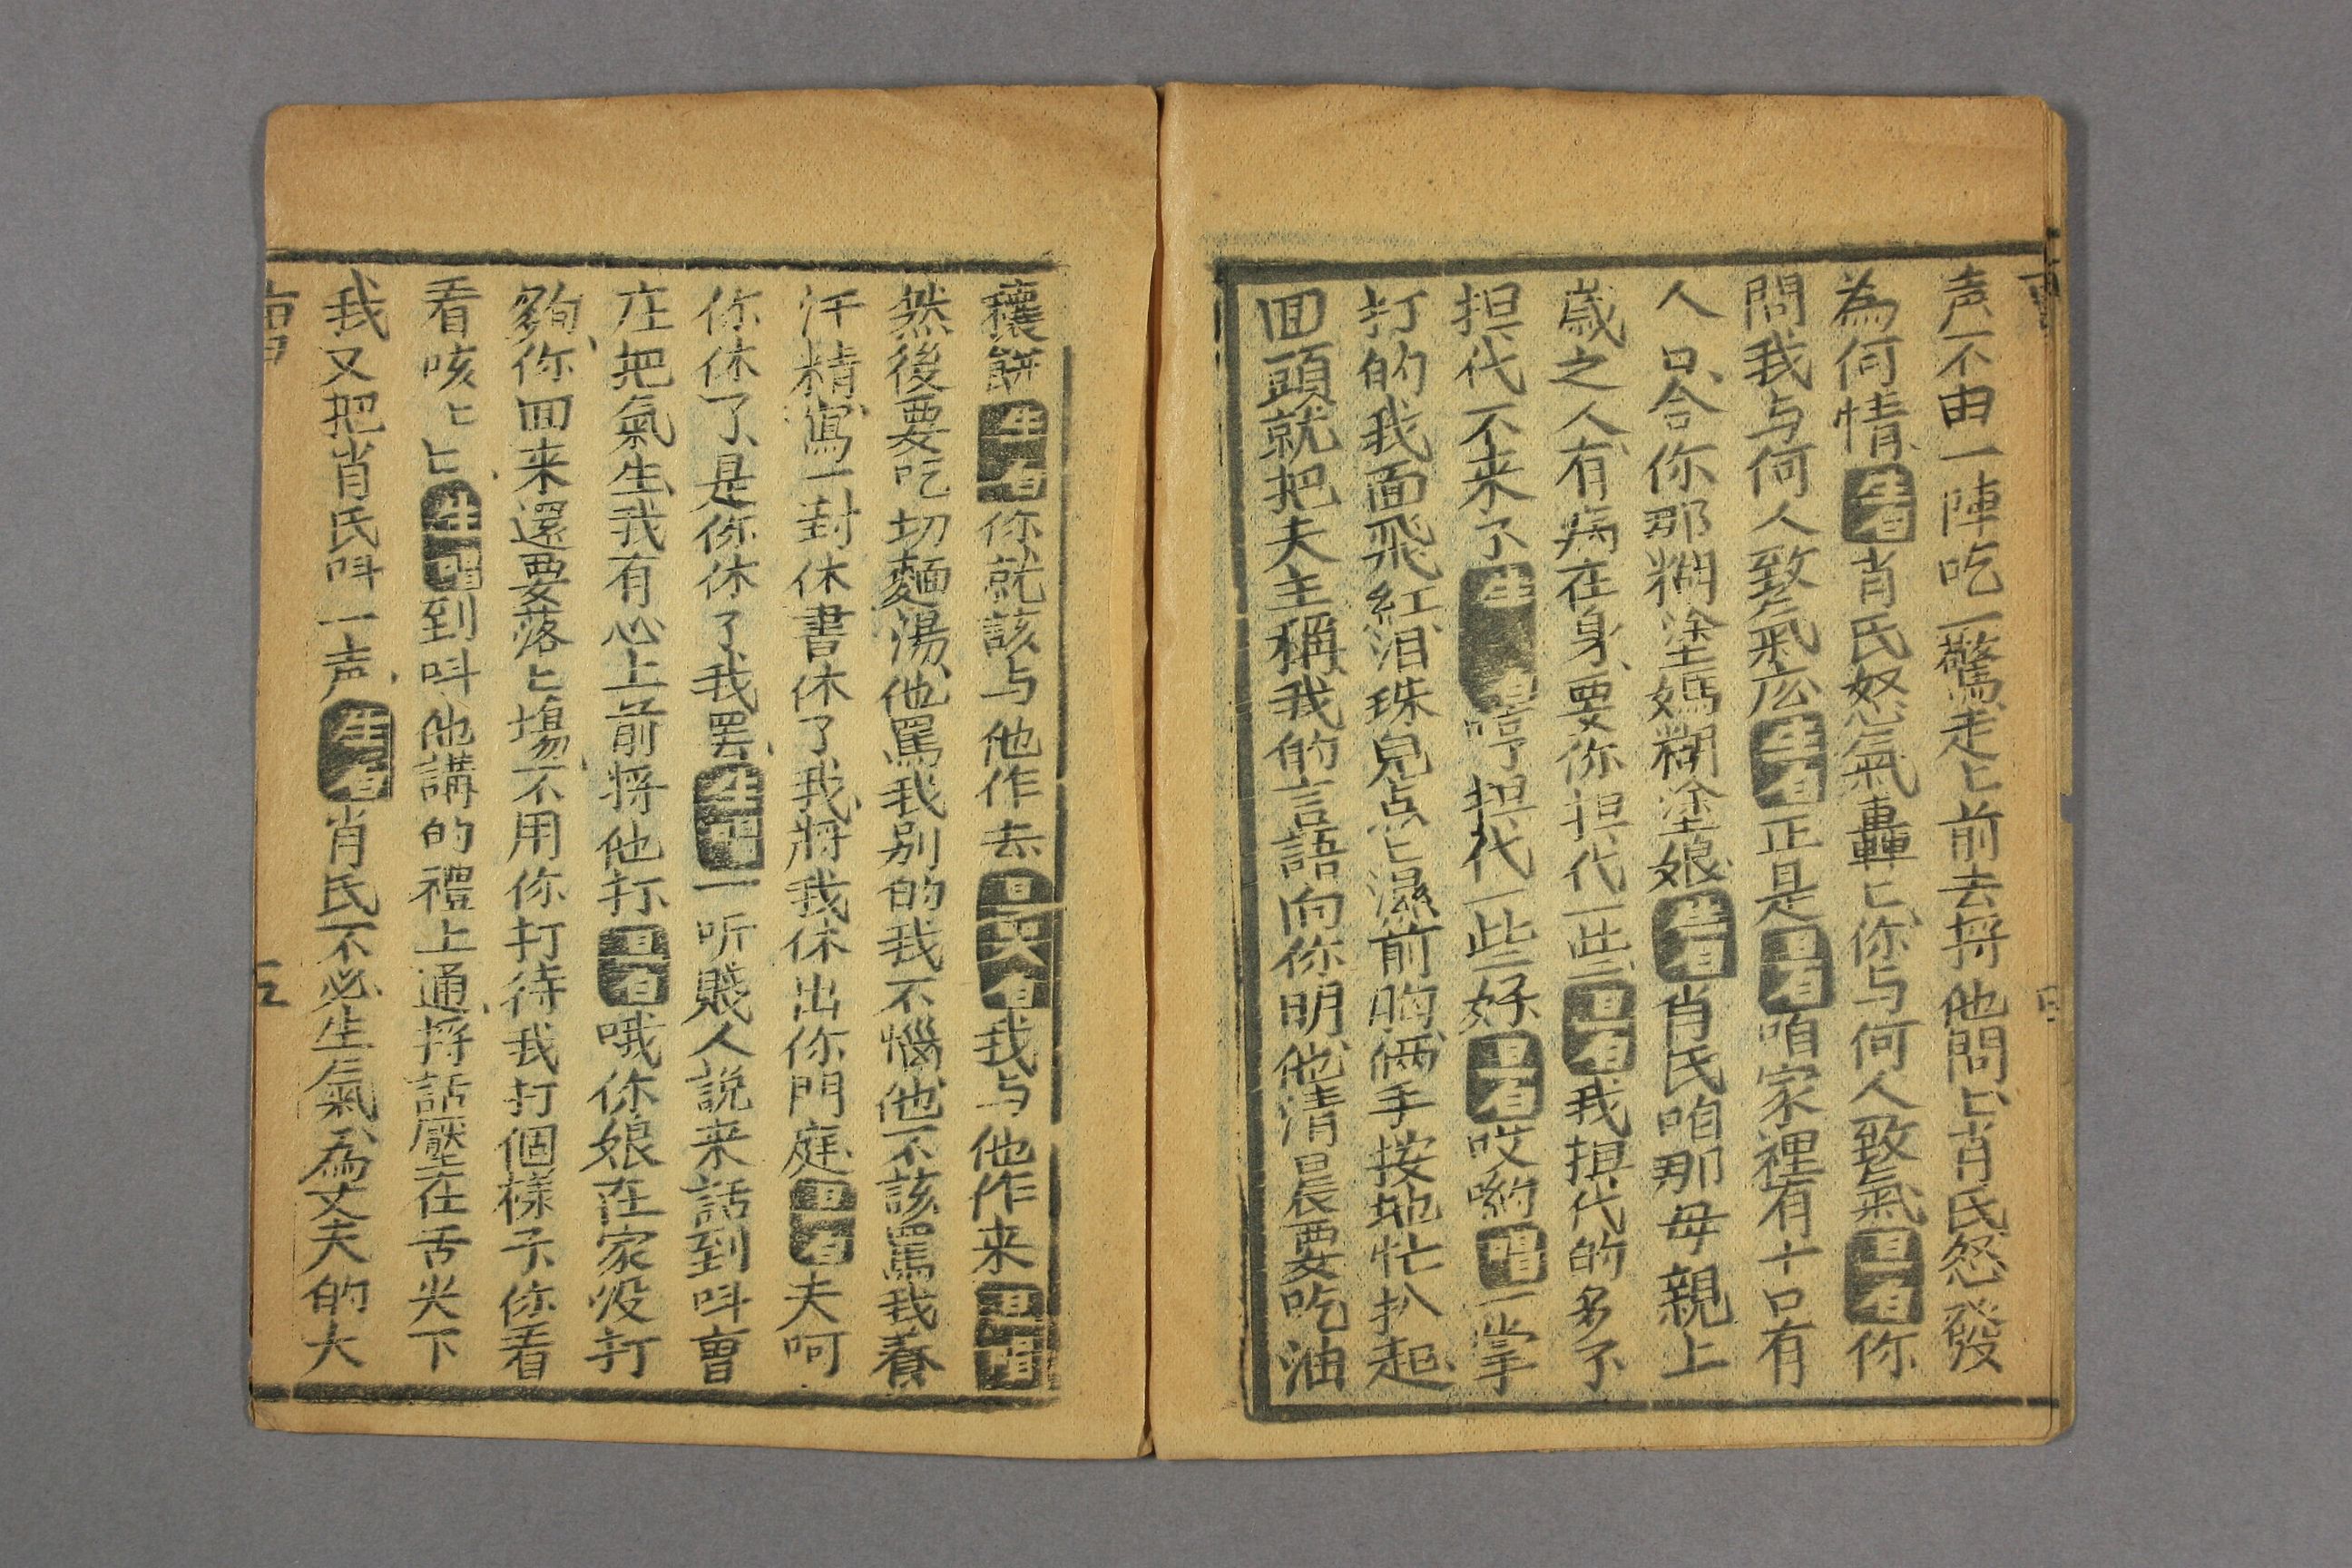 声不由一陣吃一驚走匕前去将他問匕肖氏怒發
為何情生白肖氏怒氣轟匕你与何人致氣旦白你
問我与何人致氣広生白正是旦白咱家裡有十口有
人口合你那糊塗媽糊塗娘生白肖氏咱那母親上
歲之人有病在身要你担代一些旦白我担代的多了
担代不来了生白哼担代一些好旦白哎喲唱一掌
打的我面飛紅泪珠兒点匕濕前胸俩手按地忙扒起
回頭就把夫主稱我的言語向你明他清晨要吃油
穰餅生白你就該与他作去旦哭白我与他作来旦唱
然後要吃切麵湯他罵我别的我不惱他不該罵我養
汗精寫一封休書休了我将我休出你門庭旦白夫呵
你休了是你休了我罢生唱一听賤人説来話到呌曺
庄把氣生我有心上前将他打旦白哦你娘在家没打
夠你回来還要落匕塲不用你打待我打個樣子你看
看咳匕匕生唱到呌他講的禮上通将話壓在舌尖下
我又把肖氏呌一声生白肖氏不必生氣為丈夫的大
五